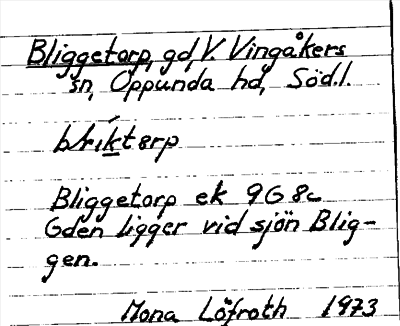 Bliggetorp, gd, V. Vingåkers
sn, Oppunda hd, Södl.
Bliggetorp ek 9G 8c
Gden ligger vid sjön Blig-
gen.
Mona Löfroth 1973